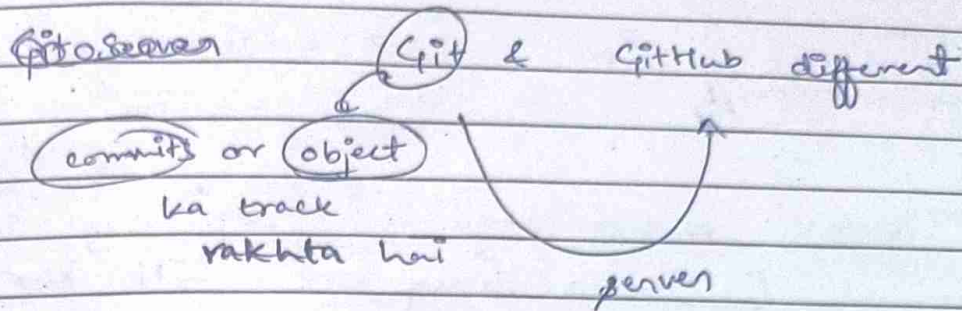 Git & GitHub different
commits or object
ka track
rakhta hai
server